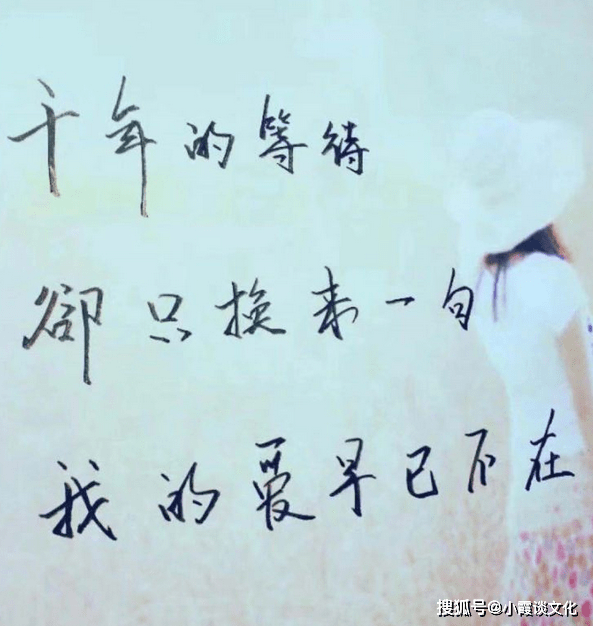 千年的等待
卻只换来一句
我的爱早已不在
搜狐号@小霞谈文化